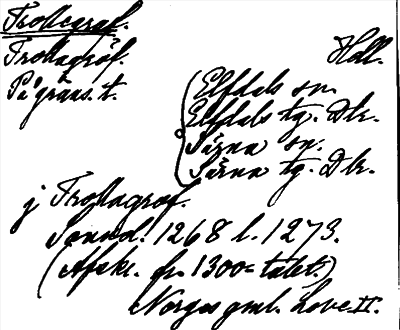 Trollegraf.
Trollagröf.
Håll.
På gräns. t.
Elfdals sn.
Elfdals tg. Dlr.
Särna sn.
Särna tg. Dlr.
j Trollagrof.
Sannd. 1268 l. 1273.
(Afskr. fr. 1300= talet.)
Norges gml. Love II.